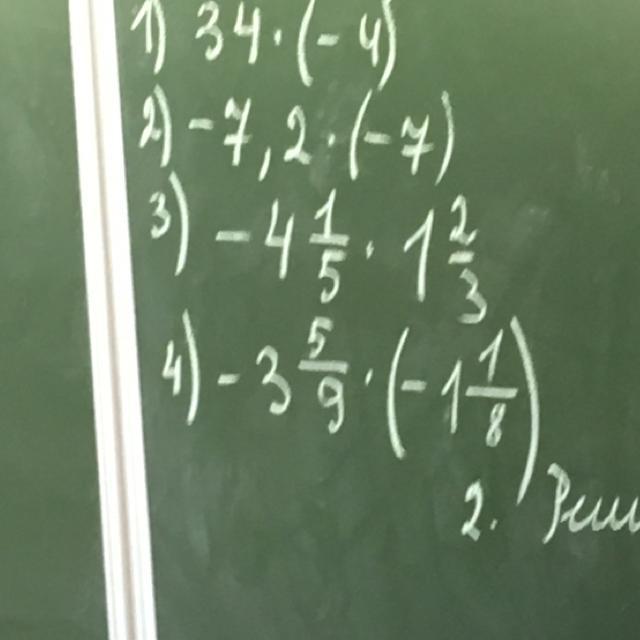 1) 34 · (-4)
2) -7,2 · (-7)
3) -4 1/5 · 1 2/3
4) -3 5/9 · (-1 1/8)
2.